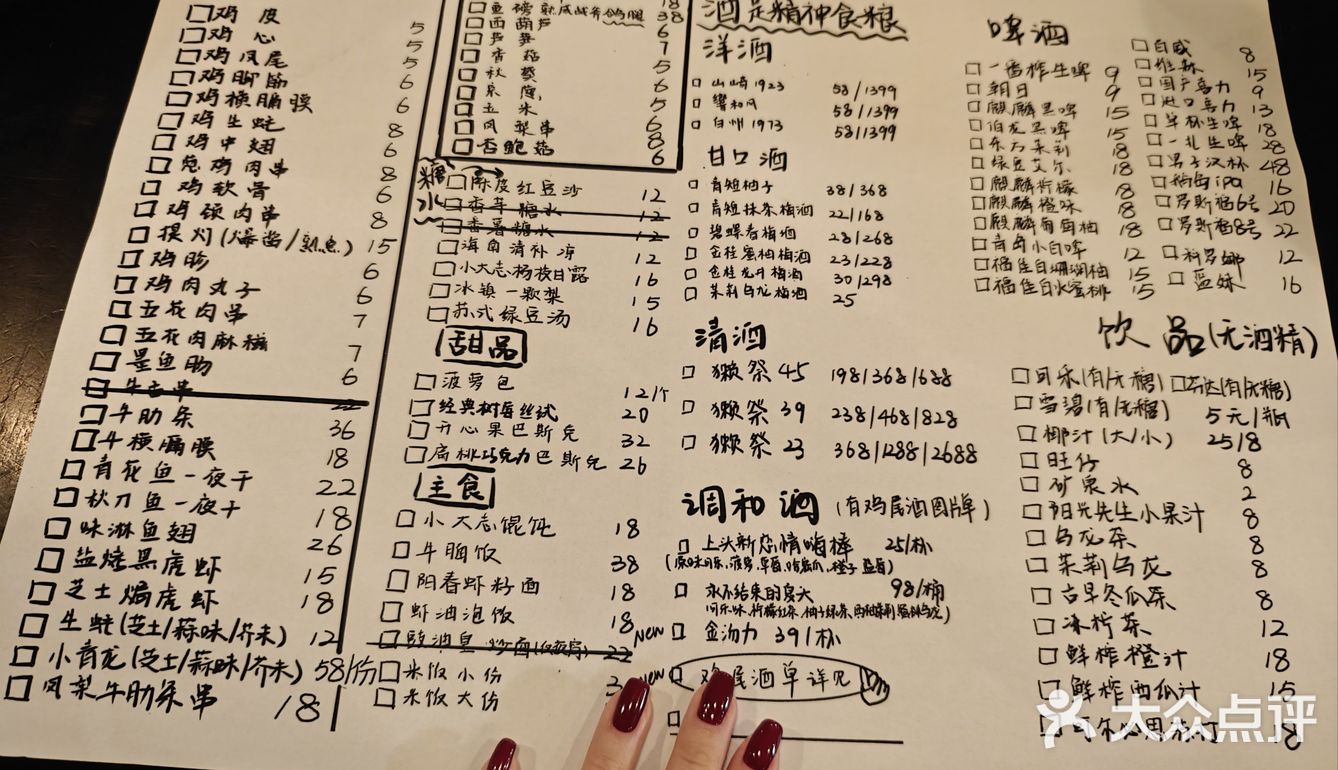 鸡皮
鸡心 5
鸡凤尾 5
鸡脚筋 6
鸡横膈膜 6
鸡生蚝 8
鸡中翅 6
葱鸡肉串 8
鸡软骨 6
鸡颈肉串 8
提灯(爆酱/熟息) 15
鸡胗 6
鸡肉丸子 6
五花肉串 7
五花肉麻糍 7
墨鱼肠 6
牛肋条 36
牛横膈膜 18
青花鱼一夜干 22
秋刀鱼一夜干 18
味淋鱼翅 26
盐烧黑虎虾 15
芝士焗虎虾 18
生蚝(芝士/蒜味/芥末) 12
小青龙(芝士/蒜味/芥末) 58/份
凤梨牛肋条串 18
西葫芦 6
芦笋 7
香菇 5
秋葵 6
玉米 6
凤梨串 8
杏鲍菇 6
糖水
陈皮红豆沙 12
香芋糖水 12
番薯糖水 12
海南清补凉 12
小大志杨枝甘露 16
冰镇一颗梨 15
苏式绿豆汤 16
甜品
菠萝包 12/个
经典树莓丝绒 20
开心果巴斯克 32
扁桃巧克力巴斯克 26
主食
小大志馄饨 18
牛胸饭 38
阳春虾籽面 18
虾油泡饭 18
豉油皇炒面 22
米饭小份 3
米饭大份
酒是精神食粮
洋酒
山崎1923 58/1399
響和风 58/1399
白州1973 58/1399
甘口酒
青短柚子 38/368
青短抹茶梅酒 22/168
碧螺春梅酒 28/268
金桂蜜柚梅酒 23/228
金桂龙井梅酒 30/298
茉莉乌龙梅酒 25
清酒
獭祭45 198/368/688
獭祭39 238/468/828
獭祭23 368/1288/2688
调和酒(有鸡尾酒图牌)
上头新恋情嗨棒 25/杯
永不结束的夏天 98/桶
New 金汤力 39/杯
New 鸡尾酒单详见
啤酒
一番榨生啤 9
朝日 9
麒麟黑啤 15
伯龙黑啤 15
东方茉莉 18
绿豆艾尔 18
麒麟柠檬 18
麒麟橙味 18
麒麟葡萄柚 18
青岛小白啤 12
福佳白珊瑚柚 15
福佳白水蜜桃 15
百威 8
雅妹 15
国产喜力 9
进口喜力 13
单杯生啤 18
一扎生啤 28
男子汉杯 48
鹅岛ipa 16
罗斯福6号 20
罗斯福8号 22
科罗娜 12
蓝妹 16
饮品(无酒精)
可乐(有/无糖) 芬达(有/无糖)
雪碧(有/无糖) 5元/瓶
椰汁(大/小) 25/8
旺仔 8
矿泉水 2
阳光先生小果汁 8
乌龙茶 8
茉莉乌龙 8
古早冬瓜茶 8
冰柠茶 12
鲜榨橙汁 18
鲜榨西瓜汁 15
18
大众点评